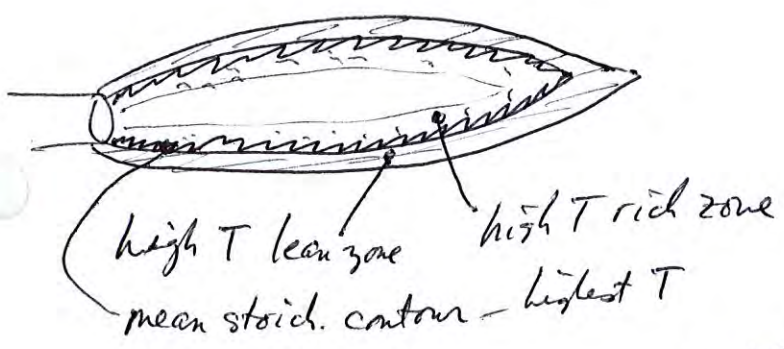 high T lean zone
high T rich zone
mean stoich. contour – highest T